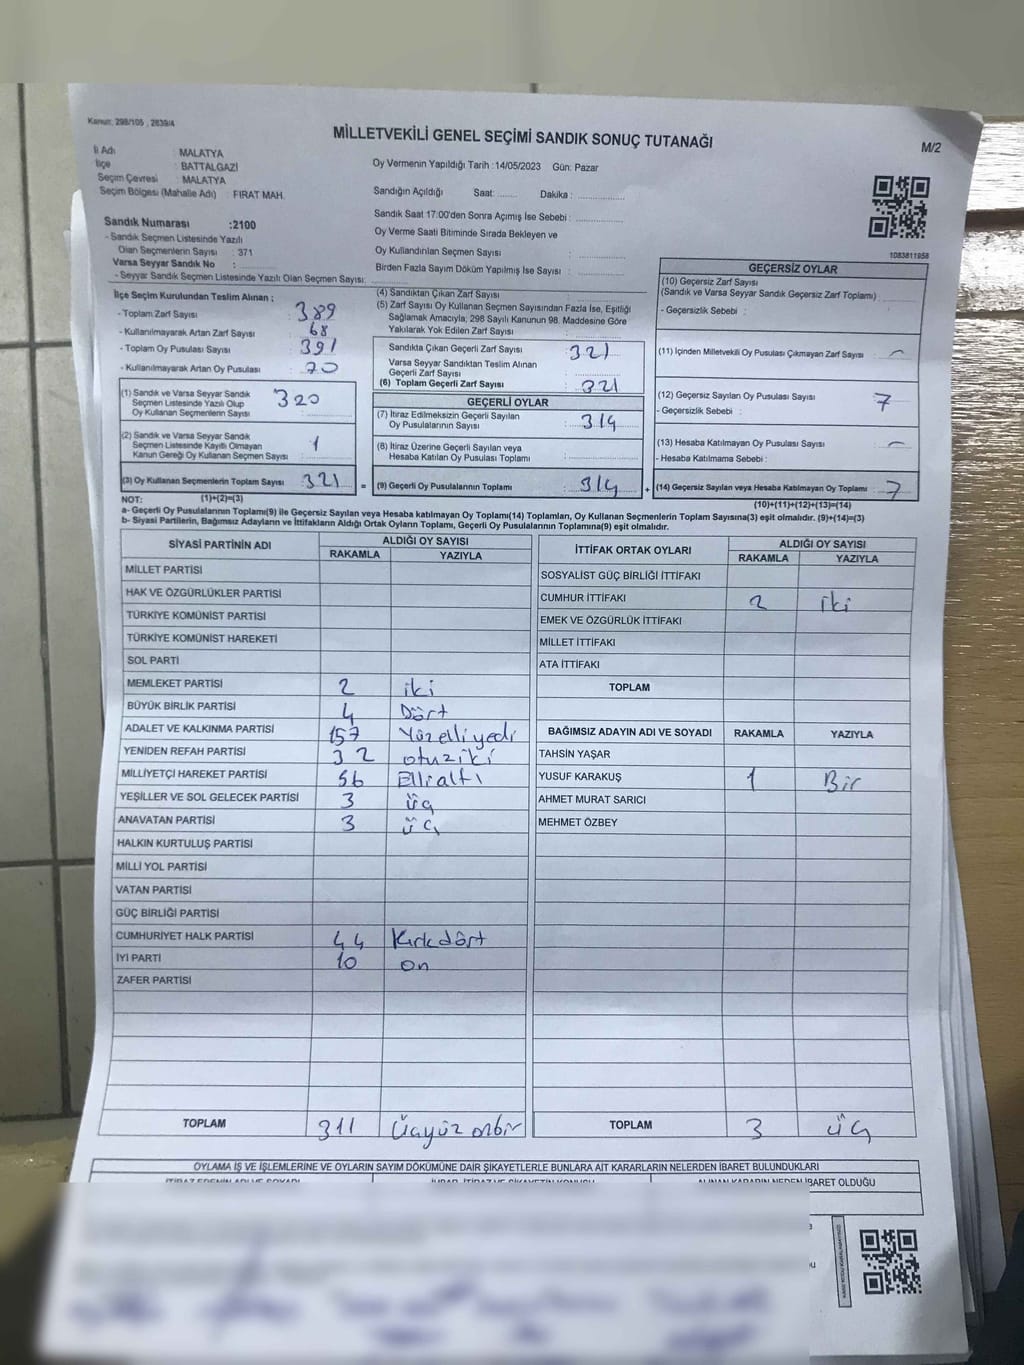 Kanun: 298/105 , 2839/4
MİLLETVEKİLİ GENEL SEÇİMİ SANDIK SONUÇ TUTANAĞI
M/2
İl Adı : MALATYA
İlçe : BATTALGAZİ
Seçim Çevresi : MALATYA
Seçim Bölgesi (Mahalle Adı) : FIRAT MAH.
Oy Vermenin Yapıldığı Tarih :14/05/2023 Gün: Pazar
Sandığın Açıldığı Saat: ........ Dakika : ........
Sandık Saat 17:00'den Sonra Açımış İse Sebebi : ........
Oy Verme Saati Bitiminde Sırada Bekleyen ve
Oy Kullandırılan Seçmen Sayısı : ........
Birden Fazla Sayım Döküm Yapılmış İse Sayısı : ........
1083811958
Sandık Numarası :2100
- Sandık Seçmen Listesinde Yazılı
Olan Seçmenlerin Sayısı : 371
Varsa Seyyar Sandık No :
- Seyyar Sandık Seçmen Listesinde Yazılı Olan Seçmen Sayısı:
İlçe Seçim Kurulundan Teslim Alınan ;
- Toplam Zarf Sayısı : 389
- Kullanılmayarak Artan Zarf Sayısı : 68
- Toplam Oy Pusulası Sayısı : 391
- Kullanılmayarak Artan Oy Pusulası : 70
(1) Sandık ve Varsa Seyyar Sandık
Seçmen Listesinde Yazılı Olup
Oy Kullanan Seçmenlerin Sayısı : 320
(2) Sandık ve Varsa Seyyar Sandık
Seçmen Listesinde Kayıtlı Olmayan
Kanun Gereği Oy Kullanan Seçmen Sayısı : 1
(3) Oy Kullanan Seçmenlerin Toplam Sayısı : 321
(4) Sandıktan Çıkan Zarf Sayısı :
(5) Zarf Sayısı Oy Kullanan Seçmen Sayısından Fazla İse, Eşitliği
Sağlamak Amacıyla, 298 Sayılı Kanunun 98. Maddesine Göre
Yakılarak Yok Edilen Zarf Sayısı :
Sandıkta Çıkan Geçerli Zarf Sayısı : 321
Varsa Seyyar Sandıktan Teslim Alınan
Geçerli Zarf Sayısı :
(6) Toplam Geçerli Zarf Sayısı : 321
GEÇERLİ OYLAR
(7) İtiraz Edilmeksizin Geçerli Sayılan
Oy Pusulalarının Sayısı : 314
(8) İtiraz Üzerine Geçerli Sayılan veya
Hesaba Katılan Oy Pusulası Toplamı :
= (9) Geçerli Oy Pusulalarının Toplamı : 314
GEÇERSİZ OYLAR
(10) Geçersiz Zarf Sayısı
(Sandık ve Varsa Seyyar Sandık Geçersiz Zarf Toplamı) :
- Geçersizlik Sebebi :
(11) İçinden Milletvekili Oy Pusulası Çıkmayan Zarf Sayısı : –
(12) Geçersiz Sayılan Oy Pusulası Sayısı : 7
- Geçersizlik Sebebi :
(13) Hesaba Katılmayan Oy Pusulası Sayısı : –
- Hesaba Katılmama Sebebi :
+ (14) Geçersiz Sayılan veya Hesaba Katılmayan Oy Toplamı : 7
NOT: (1)+(2)=(3) (10)+(11)+(12)+(13)=(14)
a- Geçerli Oy Pusulalarının Toplamı(9) ile Geçersiz Sayılan veya Hesaba katılmayan Oy Toplamı(14) Toplamları, Oy Kullanan Seçmenlerin Toplam Sayısına(3) eşit olmalıdır. (9)+(14)=(3)
b- Siyasi Partilerin, Bağımsız Adayların ve İttifakların Aldığı Ortak Oyların Toplamı, Geçerli Oy Pusulalarının Toplamına(9) eşit olmalıdır.
SİYASİ PARTİNİN ADI ALDIĞI OY SAYISI
RAKAMLA YAZIYLA
MİLLET PARTİSİ
HAK VE ÖZGÜRLÜKLER PARTİSİ
TÜRKİYE KOMÜNİST PARTİSİ
TÜRKİYE KOMÜNİST HAREKETİ
SOL PARTİ
MEMLEKET PARTİSİ 2 iki
BÜYÜK BİRLİK PARTİSİ 4 Dört
ADALET VE KALKINMA PARTİSİ 157 Yüzelliyedi
YENİDEN REFAH PARTİSİ 32 otuziki
MİLLİYETÇİ HAREKET PARTİSİ 56 Ellialtı
YEŞİLLER VE SOL GELECEK PARTİSİ 3 üç
ANAVATAN PARTİSİ 3 üç
HALKIN KURTULUŞ PARTİSİ
MİLLİ YOL PARTİSİ
VATAN PARTİSİ
GÜÇ BİRLİĞİ PARTİSİ
CUMHURİYET HALK PARTİSİ 44 Kırkdört
İYİ PARTİ 10 on
ZAFER PARTİSİ
TOPLAM 311 Üçyüz onbir
İTTİFAK ORTAK OYLARI ALDIĞI OY SAYISI
RAKAMLA YAZIYLA
SOSYALİST GÜÇ BİRLİĞİ İTTİFAKI
CUMHUR İTTİFAKI 2 iki
EMEK VE ÖZGÜRLÜK İTTİFAKI
MİLLET İTTİFAKI
ATA İTTİFAKI
TOPLAM
BAĞIMSIZ ADAYIN ADI VE SOYADI RAKAMLA YAZIYLA
TAHSİN YAŞAR
YUSUF KARAKUŞ 1 Bir
AHMET MURAT SARICI
MEHMET ÖZBEY
TOPLAM 3 üç
OYLAMA İŞ VE İŞLEMLERİNE VE OYLARIN SAYIM DÖKÜMÜNE DAİR ŞİKAYETLERLE BUNLARA AİT KARARLARIN NELERDEN İBARET BULUNDUKLARI
İTİRAZ EDENİN ADI VE SOYADI
ALINAN KARARIN NEDEN İBARET OLDUĞU